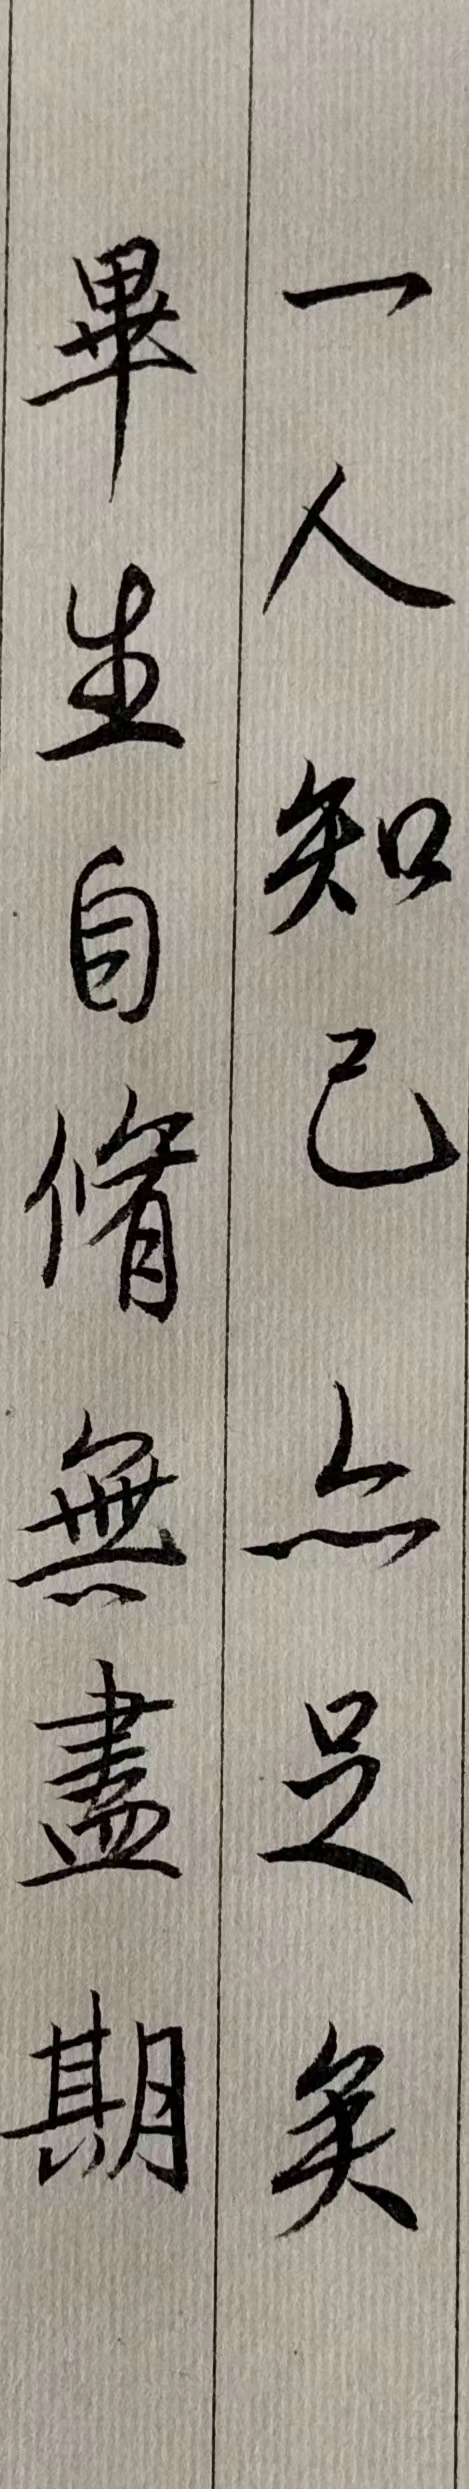 一人知己亦足矣
畢生自脩無盡期